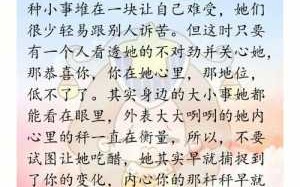 种小事堆在一块让自己难受，她们
很少轻易跟别人诉苦。但这时只要
有一个人看透她的不对劲并关心她，
那恭喜你，你在她心里，那地位，
低不了了。其实身边的大小事她都
能看在眼里，外表大大咧咧的她内
心里的秤一直在衡量，所以，不要
试图让她吃醋，她其实早就捕捉到
了你的变化，内心你的那杆秤早就